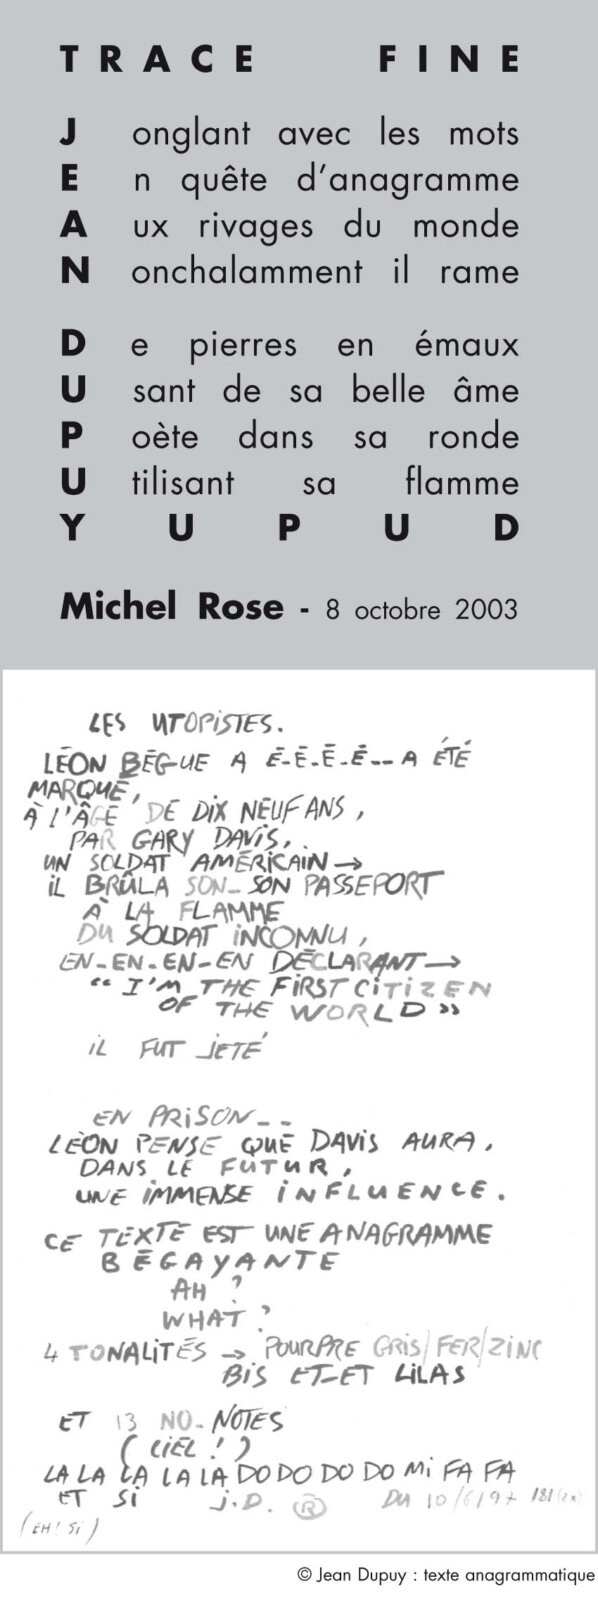 TRACE FINE
Jonglant avec les mots
En quête d'anagramme
Aux rivages du monde
Nonchalamment il rame
De pierres en émaux
Usant de sa belle âme
Poète dans sa ronde
Utilisant sa flamme
Y U P U D
Michel Rose - 8 octobre 2003
LES UTOPISTES.
LÉON BÉGUE A É-É-É-É-- A ÉTÉ
MARQUÉ,
À L'ÂGE DE DIX NEUF ANS,
PAR GARY DAVIS,
UN SOLDAT AMÉRICAIN →
IL BRÛLA SON- SON PASSEPORT
À LA FLAMME
DU SOLDAT INCONNU,
EN-EN-EN-EN DÉCLARANT →
“ I'M THE FIRST CITIZEN
OF THE WORLD ”
IL FUT JETÉ
EN PRISON--
LÉON PENSE QUE DAVIS AURA,
DANS LE FUTUR,
UNE IMMENSE INFLUENCE.
CE TEXTE EST UNE ANAGRAMME
BÉGAYANTE
AH ?
WHAT ?
4 TONALITÉS → POURPRE GRIS/FER/ZINC
BIS ET-ET LILAS
ET 13 NO-NOTES
( CIEL ! )
LA LA LA LA LA DO DO DO DO MI FA FA
ET SI J.D. ® DU 10/6/97
(EH ! SI)
© Jean Dupuy : texte anagrammatique